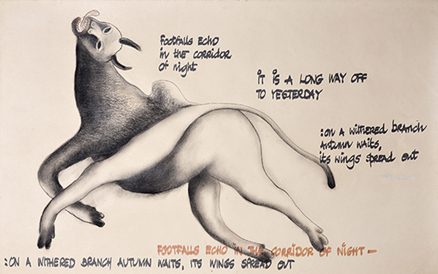 FOOTFALLS ECHO
in the CORRIDOR
of night
it is A LONG WAY OFF
TO YESTERDAY
:ON A WITHERED BRANCH
AUTUMN WAITS,
its WINGS SPREAD OUT
FOOTFALLS ECHO IN THE CORRIDOR OF NIGHT –
:ON A WITHERED BRANCH AUTUMN WAITS, ITS WINGS SPREAD OUT